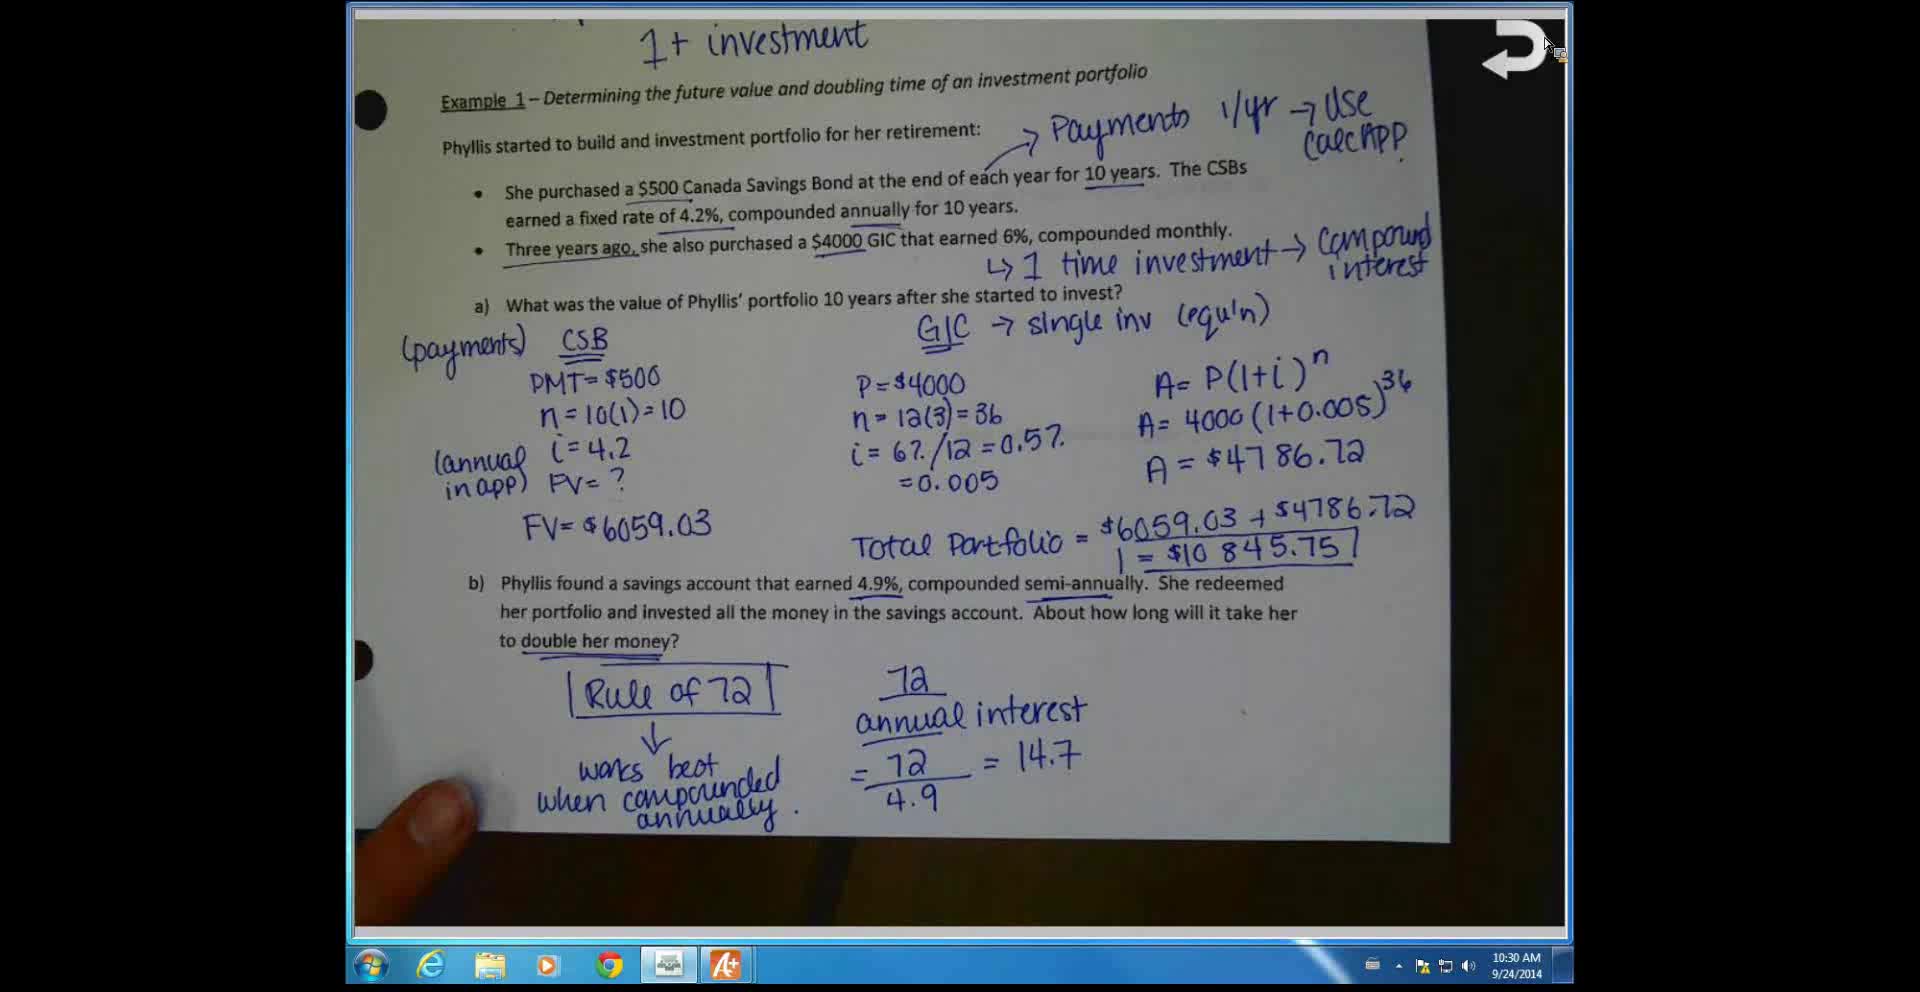 1+ investment
Example 1 – Determining the future value and doubling time of an investment portfolio
Phyllis started to build and investment portfolio for her retirement:
→ Payments 1/yr → Use CalcAPP.
• She purchased a $500 Canada Savings Bond at the end of each year for 10 years. The CSBs
earned a fixed rate of 4.2%, compounded annually for 10 years.
• Three years ago, she also purchased a $4000 GIC that earned 6%, compounded monthly.
↳ 1 time investment → compound
interest
a) What was the value of Phyllis' portfolio 10 years after she started to invest?
(payments) CSB
PMT = $500
n = 10(1) = 10
(annual in app) i = 4.2
FV = ?
FV = $6059.03
GIC → single inv (equ'n)
P = $4000
n = 12(3) = 36
i = 6%/12 = 0.5%
= 0.005
A = P(1+i)^n
A = 4000(1+0.005)^36
A = $4786.72
Total Portfolio = $6059.03 + $4786.72
= $10 845.75
b) Phyllis found a savings account that earned 4.9%, compounded semi-annually. She redeemed
her portfolio and invested all the money in the savings account. About how long will it take her
to double her money?
Rule of 72
↓
works best
when compounded
annually.
72
annual interest
= 72 = 14.7
4.9
10:30 AM
9/24/2014